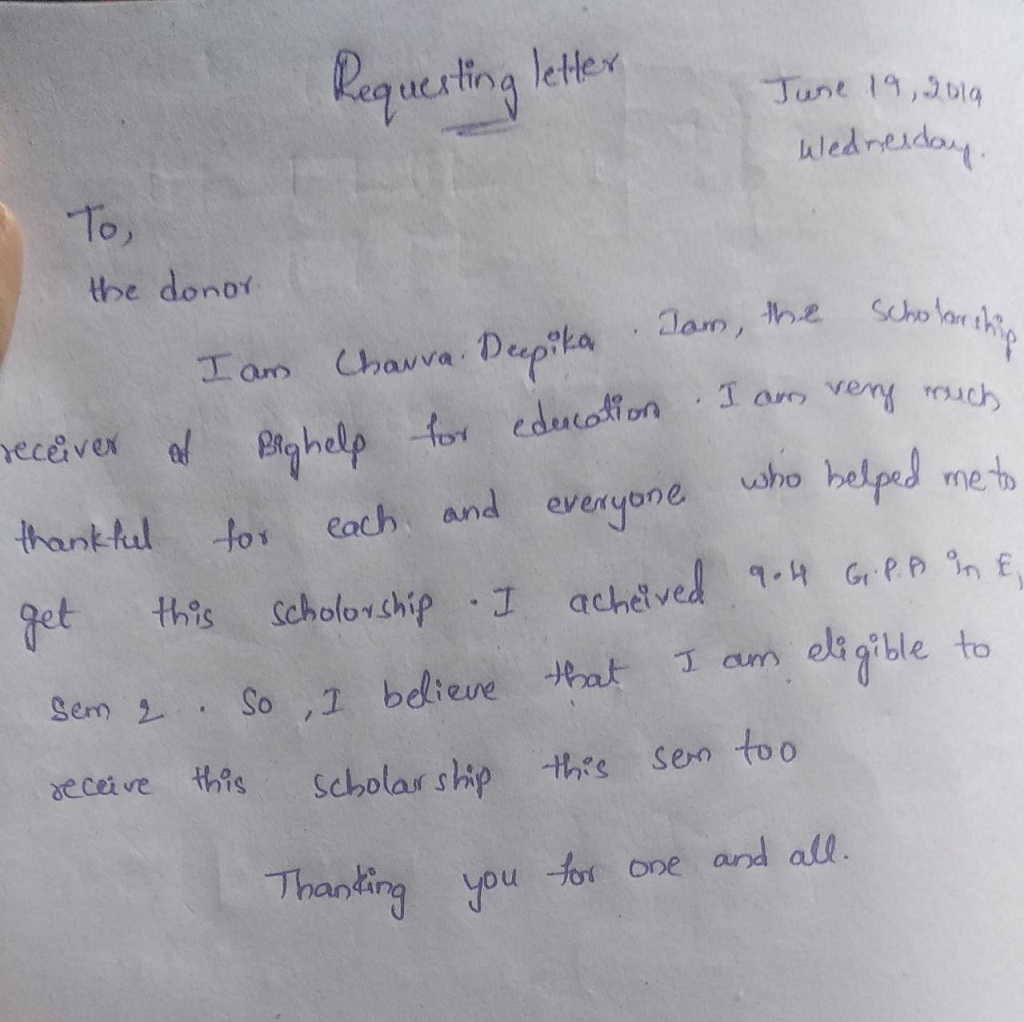 Requesting letter
June 19, 2019
Wednesday.
To,
the donor.
I am Chavva. Deepika. Iam, the Scholarship
receiver of Bighelp for education. I am very much
thankful for each and everyone who helped me to
get this scholorship. I acheived 9.4 G.P.A in E1
sem 2. So, I believe that I am eligible to
receive this scholarship this sem too
Thanking you for one and all.